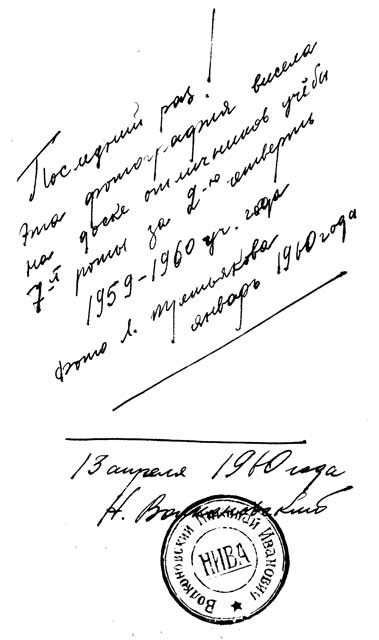 Последний раз!
Эта фотография висела
на доске отличников учёбы
7й роты за 2-ю четверть
1959-1960 уч. года
Фото Л. Третьякова
январь 1960 года
13 апреля 1960 года
Н. Волконовский
Волконовский Николай Иванович
НИВА